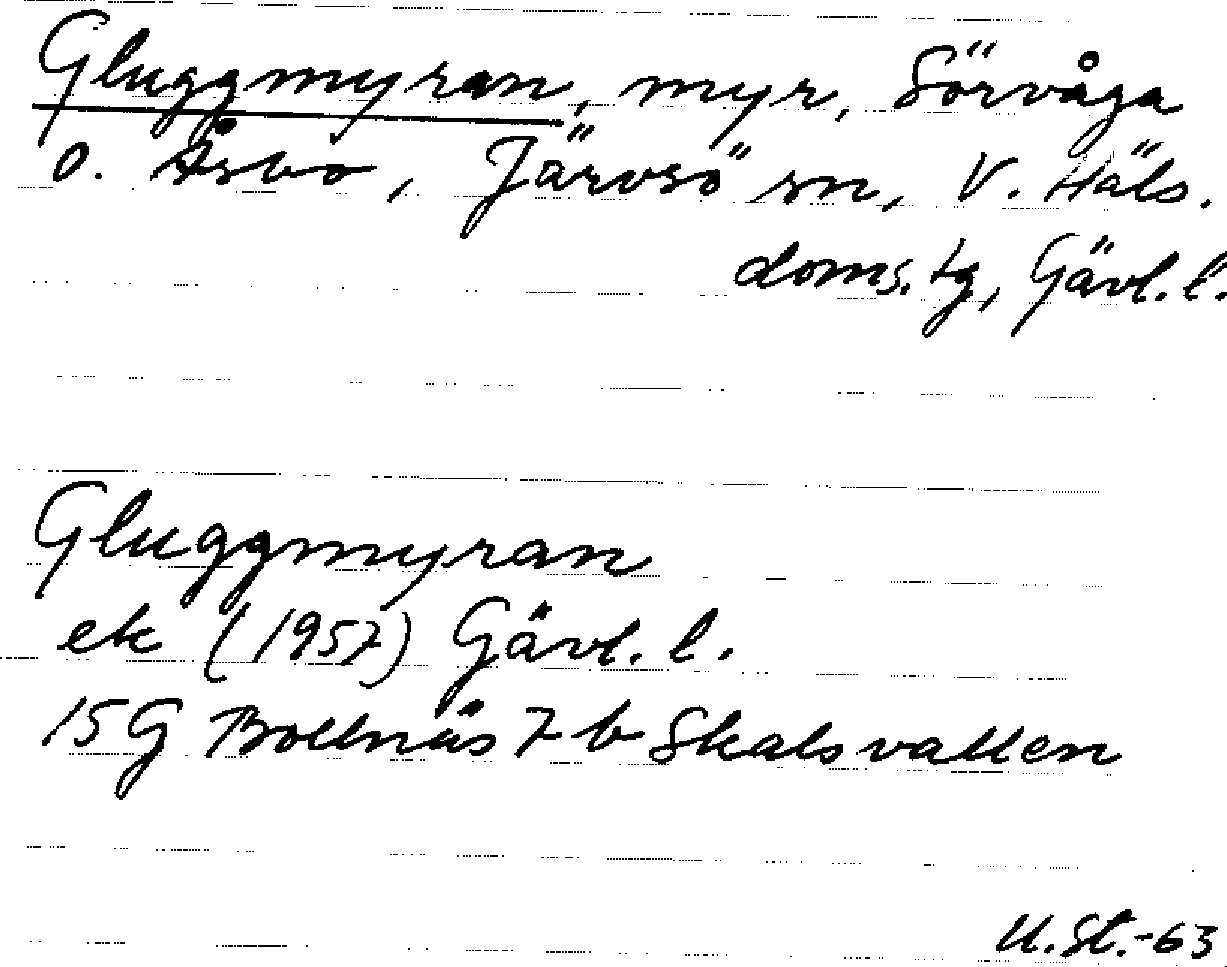 Gluggmyran, myr, Sörvåga
o. Åsbo, Järvsö sn, V. Häls.
doms. tg, Gävl. l.
Gluggmyran
ek (1957) Gävl. l.
15G Bollnäs 7 b Skalsvallen
U.St.-63